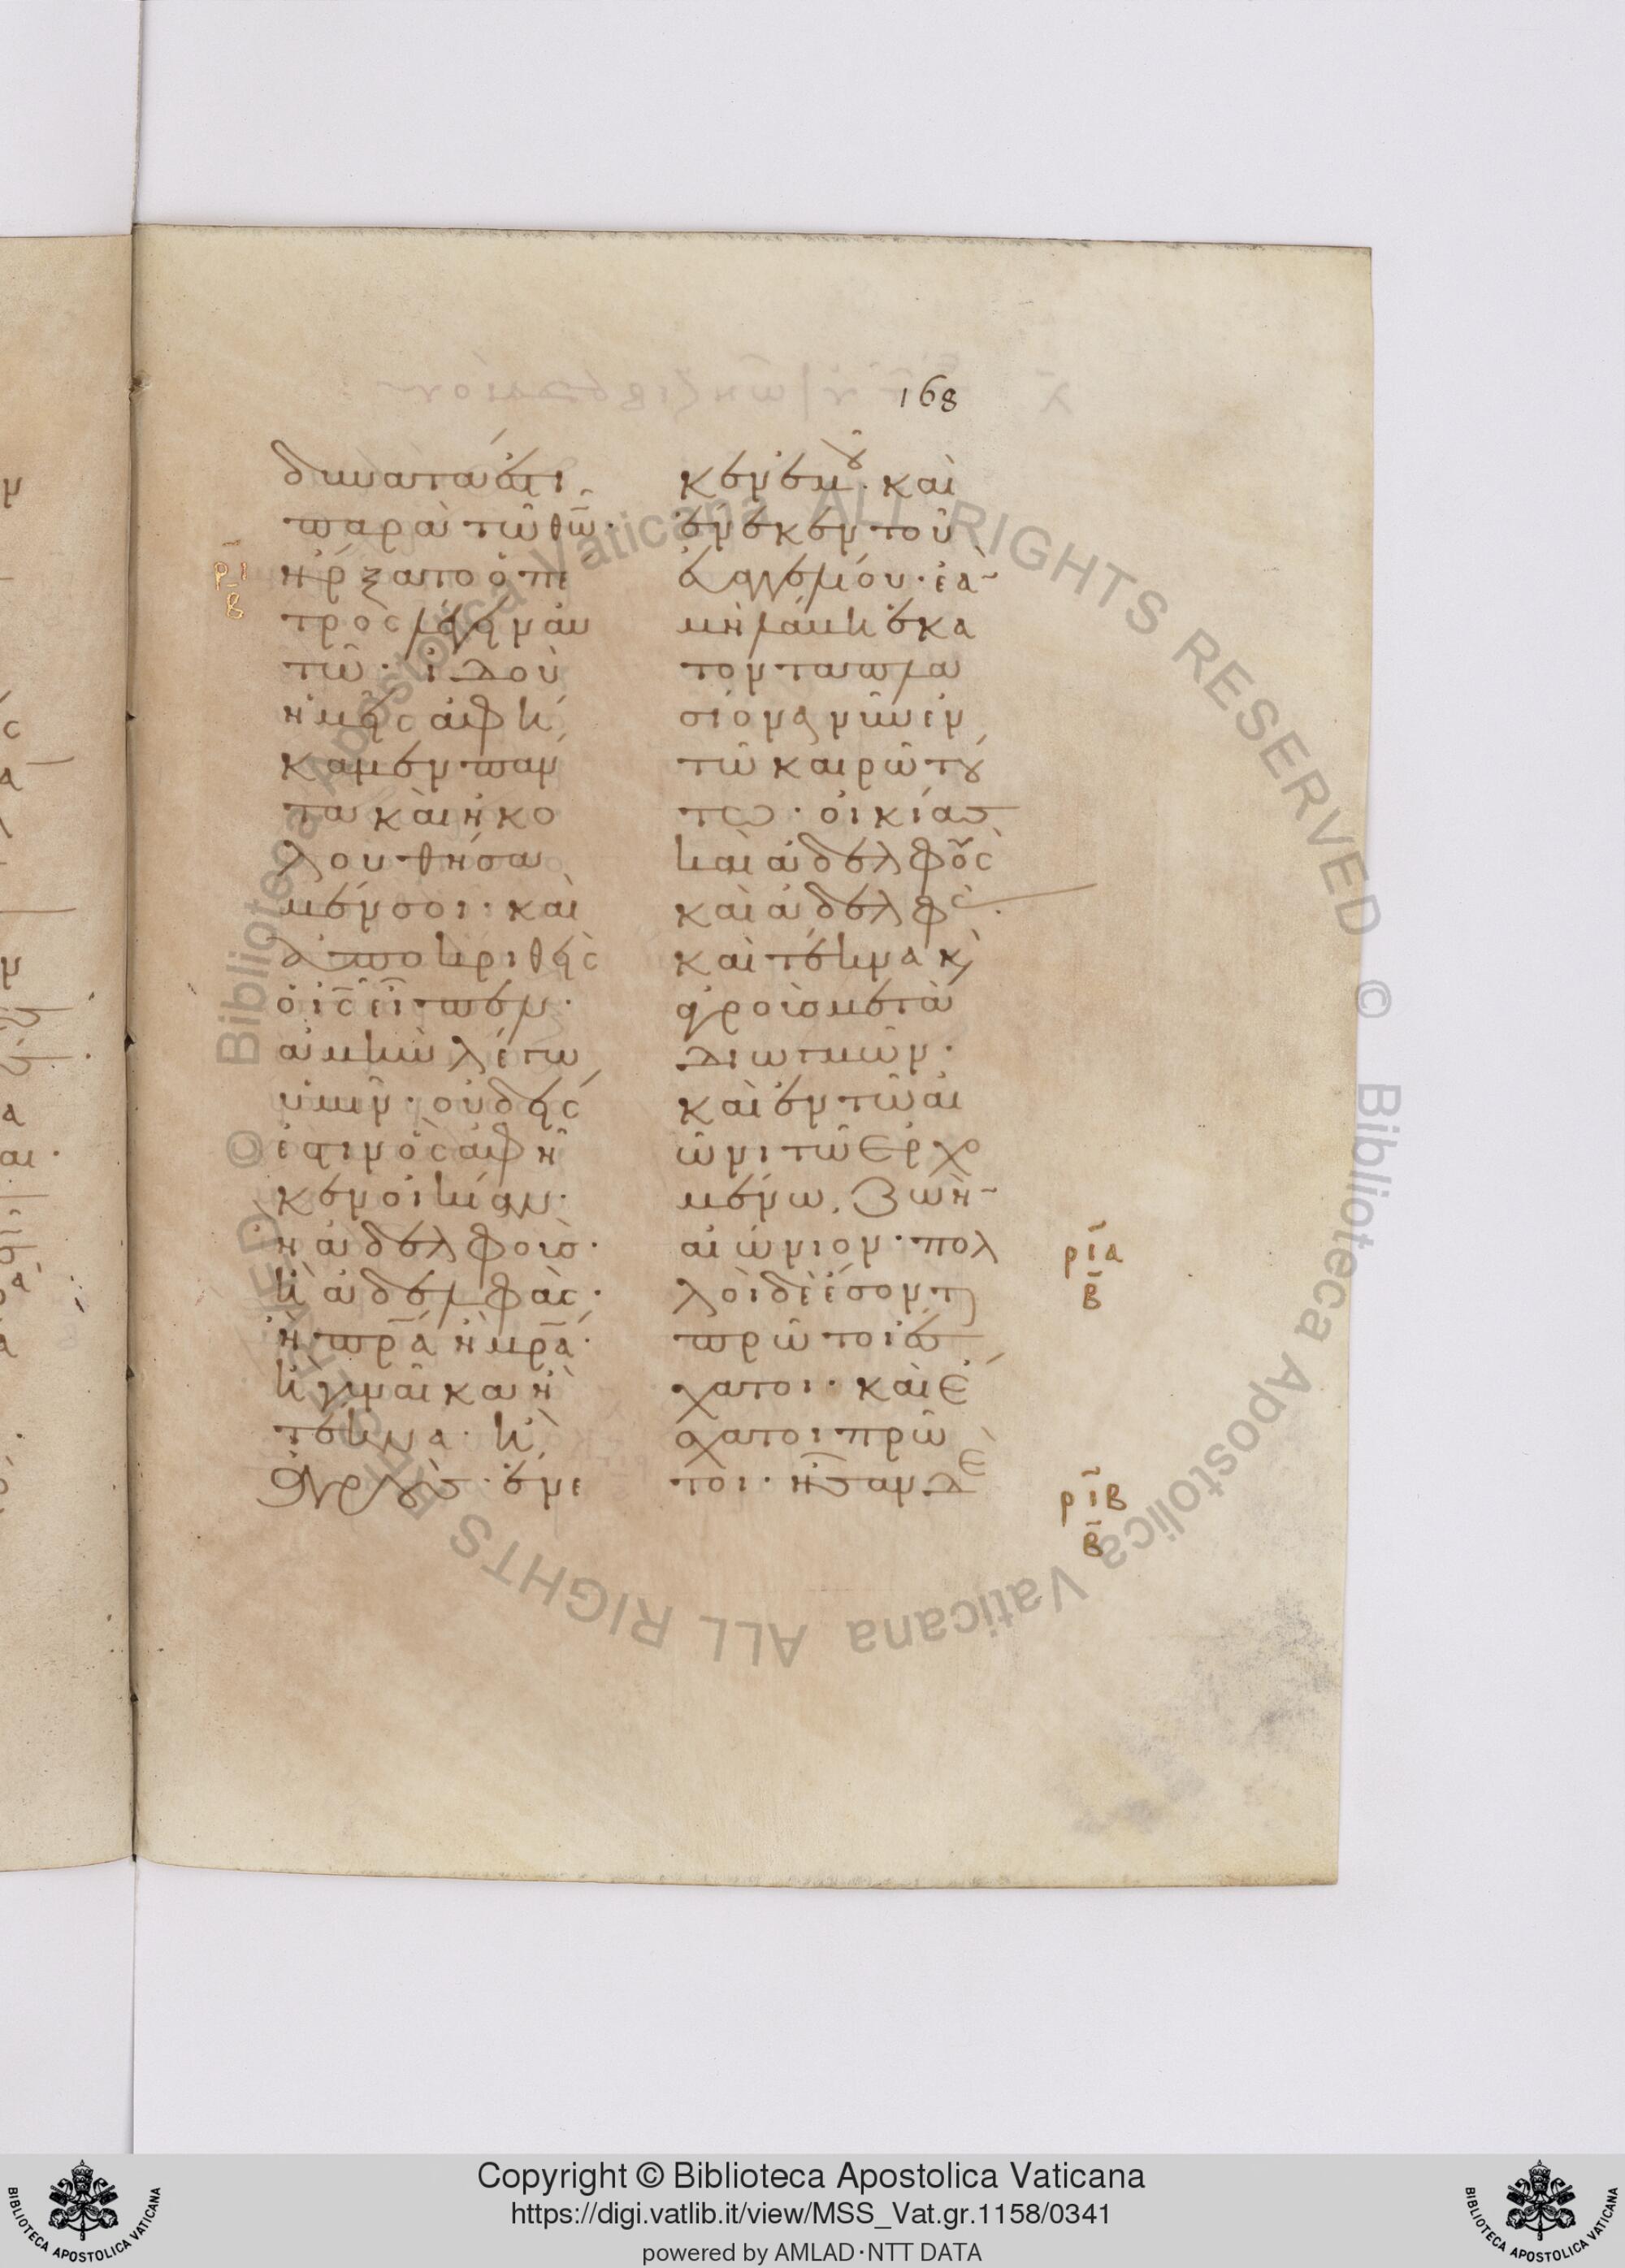 168
δυνατα ἐστι
παρὰ τῶ θω̅·
ἤρξατο ὁ πέ
τρος λέγειν αυ
τῶ· ἰδοὺ
ἡμεῖς ἀφή
καμεν πάν
τα καὶ ἠκο
λουθήσα
μέν σοι· καὶ
ἀποκριθεὶς
ὁ ις̅ εἶπεν·
ἀμὴν λέγω
ὑμῖν· οὐδείς
ἐστιν ὃς ἀφῆ
κεν οἰκίαν·
ἢ ἀδελφοὺς·
ἢ ἀδελφὰς·
ἢ πρ̅α ἢ μρ̅α·
ἢ γυναῖκα ἢ
τέκνα· ἢ
ἀγροὺς· ἕνε
κεν ἐμοῦ· καὶ
ἕνεκεν τοῦ
εὐαγγελίου· ἐὰν
μὴ λάβη ἑκα
τονταπλα
σίονα νῦν ἐν
τῶ καιρῶ τού
τω· οἰκίας
καὶ ἀδελφοὺς
καὶ ἀδελφὰς·
καὶ τέκνα καὶ
ἀγροὺς μετὰ
διωγμῶν·
καὶ ἐν τῶ αἰ
ῶνι τῶ ἐρχο
μένω, ζωὴν
αἰώνιον· πολ
λοὶ δὲ ἔσονται
πρῶτοι ἔσ
χατοι· καὶ ἔ
σχατοι πρῶ
τοι· ἦσαν δὲ
ρι̅
β
ρι̅α
β̅
ρι̅β
β̅
Copyright © Biblioteca Apostolica Vaticana
https://digi.vatlib.it/view/MSS_Vat.gr.1158/0341
powered by AMLAD·NTT DATA
BIBLIOTECA APOSTOLICA VATICANA
BIBLIOTECA APOSTOLICA VATICANA
© Biblioteca Apostolica Vaticana ALL RIGHTS RESERVED © Biblioteca Apostolica Vaticana ALL RIGHTS RESERVED